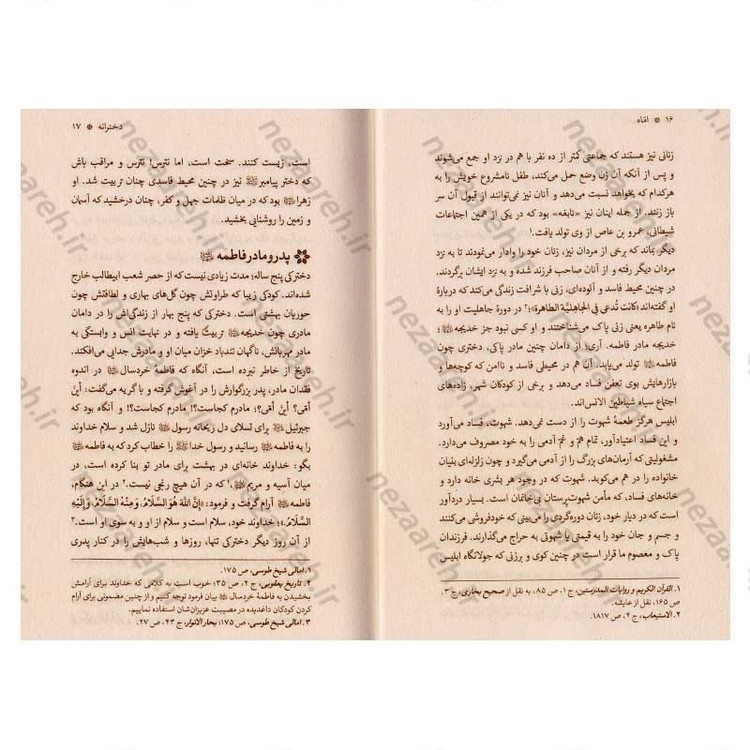 ۱۶ * امّاه
زنانی نیز هستند که جماعتی کمتر از ده نفر با هم در نزد او جمع می‌شوند
و پس از آنکه آن زن وضع حمل می‌کند، طفل نامشروع خویش را به
هرکدام که بخواهد نسبت می‌دهد و آنان نیز نمی‌توانند از قبول آن سر
باز زنند. از جمله اینان نیز «نابغه» بود که در یکی از همین اجتماعات
شیطانی، عمرو بن عاص از وی تولد یافت.۱
دیگر بماند که برخی از مردان نیز، زنان خود را وادار می‌نمودند تا به نزد
مردان دیگر رفته و از آنان صاحب فرزند شده و به نزد ایشان برگردند.
در چنین محیط فاسد و آلوده‌ای، زنی با شرافت زندگی می‌کند که دربارۀ
او گفته‌اند «کانت تُدعی فِی الجاهلیَّة الطاهرة»؛۲ در دورۀ جاهلیت او را به
نام طاهره یعنی زنی پاک می‌شناختند و او کسی نبود جز خدیجه؛
خدیجه مادر فاطمه. آری؛ از دامان چنین مادر پاکی، دختری چون
فاطمه تولد می‌یابد. آن هم در محیطی فاسد و ناامن که کوچه‌ها و
بازارهایش بوی تعفن فساد می‌دهد و برخی از کودکان شهر، زاده‌های
اجتماع سیاه شیاطین الانس‌اند.
ابلیس هرگز طعمۀ شهوت را از دست نمی‌دهد. شهوت، فساد می‌آورد
و این فساد اعتیادآور، تمام هم و غم آدمی را به خود مصروف می‌دارد.
مشغولیتی که آرمان‌های بزرگ را از آدمی می‌گیرد و چون زلزله‌ای بنیان
خانواده را در هم می‌کوبد. شهوت که در وجود هر بشری خانه دارد و
خانه‌های فساد، که مأمن شهوت‌پرستان بی‌خانمان است. بسیار دردآور
است که در دیار خود، زنان دوره‌گردی را می‌بینی که خودفروشی می‌کنند
و جسم و جان خود را به قیمتی یا شهوتی به حراج می‌گذارند. فرزندان
پاک و معصوم ما قرار است در چنین کوی و برزنی که جولانگاه ابلیس
۱. القرآن الکریم و روایات المدرستین، ج ۱، ص ۸۵، به نقل از صحیح بخاری، ج ۳،
ص ۱۶۵، نقل از عایشه.
۲. الاستیعاب، ج ۴، ص ۱۸۱۷.
دخترانه * ۱۷
است، زیست کنند. سخت است، اما نترس! نترس و مراقب باش
که دختر پیامبر نیز در چنین محیط فاسدی چنان تربیت شد. او
زهرا بود که در میان ظلمات جهل و کفر، چنان درخشید که آسمان
و زمین را روشنایی بخشید.
پدر و مادر فاطمه
دخترکی پنج ساله؛ مدت زیادی نیست که از حصر شعب ابیطالب خارج
شده‌اند. کودکی زیبا که طراوتش چون گل‌های بهاری و لطافتش چون
حوریان بهشتی است. دخترکی که پنج بهار از زندگی‌اش را در دامان
مادری چون خدیجه تربیت یافته و در نهایت انس و وابستگی به
مادر مهربانش، ناگهان تندباد خزان میان او و مادرش جدایی می‌افکند.
تاریخ از خاطر نبرده است، آنگاه که فاطمۀ خردسال در اندوه
فقدان مادر، پدر بزرگوارش را در آغوش گرفته و با گریه می‌گفت: أینَ
أمّی؟ أینَ أمّی؟؛ مادرم کجاست؟! مادرم کجاست؟! و آنگاه بود که
جبرئیل برای تسلای دل ریحانه رسول نازل شد و سلام خداوند
را به فاطمه رسانید و رسول خدا را خطاب کرد که به فاطمه
بگو: خداوند خانه‌ای در بهشت برای مادر تو بنا کرده است، در
میان آسیه و مریم،۱ که در آن هیچ رنجی نیست.۲ در این هنگام،
فاطمه آرام گرفت و فرمود: «إنَّ اللهَ هُوَ السَّلامُ، وَ مِنهُ السَّلامُ، وَ إلَیهِ
السَّلامُ»؛ خداوند خود، سلام است و سلام از او و به سوی او است.۳
از آن روز دیگر دخترکی تنها، روزها و شب‌هایش را در کنار پدری
۱. امالی شیخ طوسی، ص ۱۷۵.
۲. تاریخ یعقوبی، ج ۲، ص ۳۵؛ خوب است به کلامی که خداوند برای آرامش
بخشیدن به فاطمۀ خردسال بیان فرمود توجه کنیم و از چنین مضمونی برای آرام
کردن کودکان داغدیده در مصیبت عزیزان‌شان استفاده نماییم.
۳. امالی شیخ طوسی، ص ۱۷۵؛ بحار الانوار، ج ۴۳، ص ۲۷.
nezaareh.ir